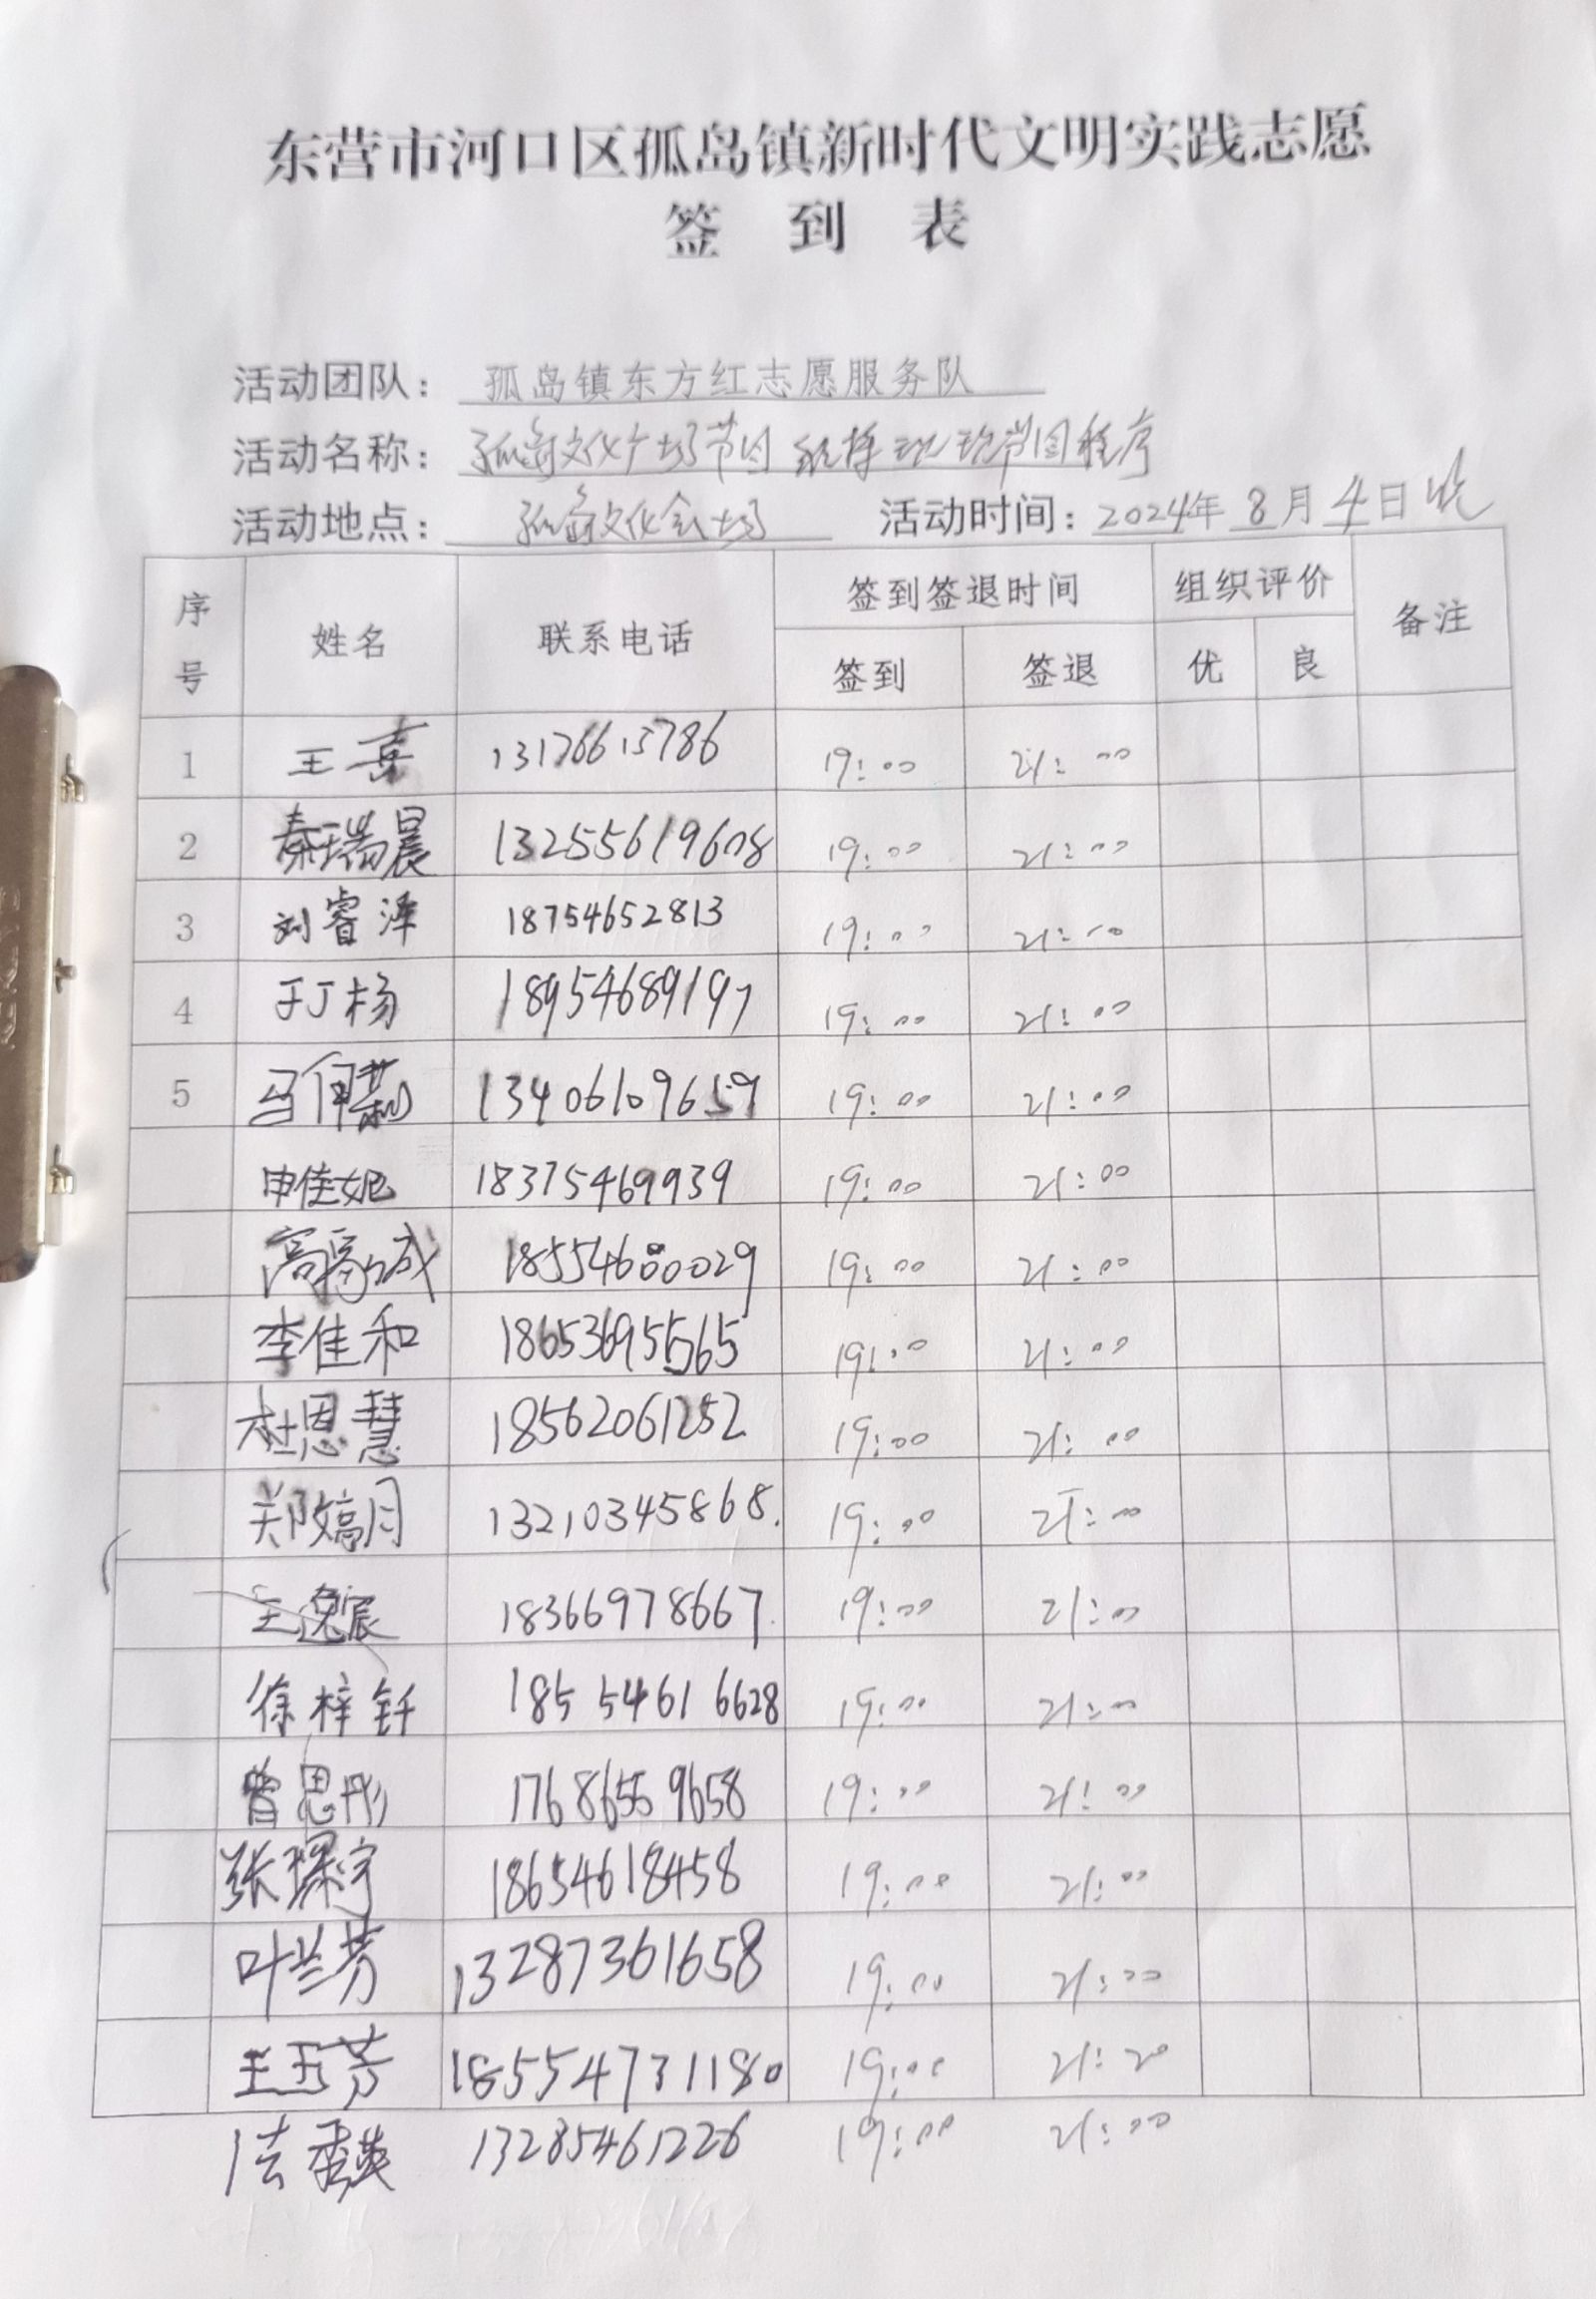 东营市河口区孤岛镇新时代文明实践志愿
签 到 表
活动团队： 孤岛镇东方红志愿服务队
活动名称： 孤岛文化广场节目 维持现场节目程序
活动地点： 孤岛文化广场 活动时间：2024年 8月 4日 晚
序号 姓名 联系电话 签到签退时间 组织评价 备注
签到 签退 优 良
1 王熹 13176615786 19:00 21:00
2 秦瑞晨 13255619608 19:00 21:00
3 刘睿泽 18754652813 19:00 21:00
4 于丁杨 18954689197 19:00 21:00
5 马伊莉 13406109659 19:00 21:00
申佳妮 18375469939 19:00 21:00
高诚 18554600029 19:00 21:00
李佳和 18653695565 19:00 21:00
杜恩慧 18562061252 19:00 21:00
郑嫡月 13210345868. 19:00 21:00
王逸宸 18366978667. 19:00 21:00
徐梓钎 18554616628 19:00 21:00
曾思彤 17686559658 19:00 21:00
张琛宇 18654618458 19:00 21:00
叶兰芳 13287361658 19:00 21:00
王玉芳 18554731180 19:00 21:20
法秀英 13285461226 19:00 21:00